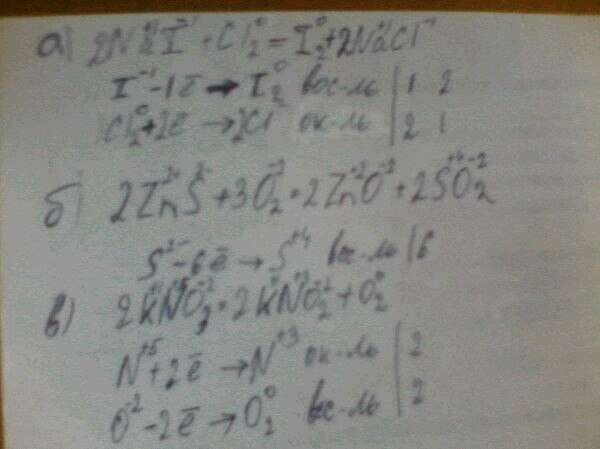 а) 2Na⁺¹I⁻¹ + Cl₂⁰ = I₂⁰ + 2Na⁺¹Cl⁻¹
I⁻¹ - 1ē → I₂⁰ вос-ль | 1 2
Cl₂⁰ + 2ē → 2Cl⁻ ок-ль | 2 1
б) 2Zn⁺²S⁻² + 3O₂ = 2Zn⁺²O⁻² + 2S⁺⁴O₂⁻²
S²⁻ - 6ē → S⁺⁴ вос-ль | 6
в) 2K⁺¹N⁺⁵O₃⁻² = 2K⁺¹N⁺³O₂⁻² + O₂⁰
N⁺⁵ + 2ē → N⁺³ ок-ль | 2
O⁻² - 2ē → O₂⁰ вос-ль | 2